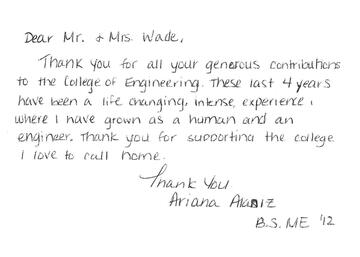 Dear Mr. & Mrs. Wade,
Thank you for all your generous contributions
to the College of Engineering. These last 4 years
have been a life changing, intense, experience,
where I have grown as a human and an
engineer. Thank you for supporting the college
I love to call home.
Thank You
Ariana Alaniz
B.S. ME '12